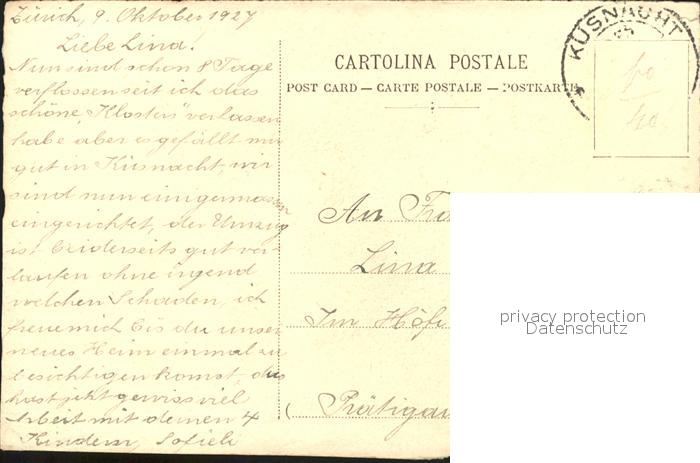 Zürich, 9. Oktober 1927
Liebe Lina!
Nun sind schon 8 Tage
verflossen seit ich das
schöne „Klosters" verlassen
habe aber es gefällt mir
gut in Küsnacht, wir
sind nun einigermassen
eingerichtet, der Umzug
ist beiderseits gut ver-
laufen ohne irgend
welchen Schaden, ich
freue mich bis du unser
neues Heim einmal zu
besichtigen komst, du
hast jetzt gewiss viel
Arbeit mit deinen 4
Kindern, Sofieli
CARTOLINA POSTALE
POST CARD — CARTE POSTALE — POSTKARTE
KÜSNACHT
An
Lina
Im Höfi
( Prätigau
privacy protection
Datenschutz